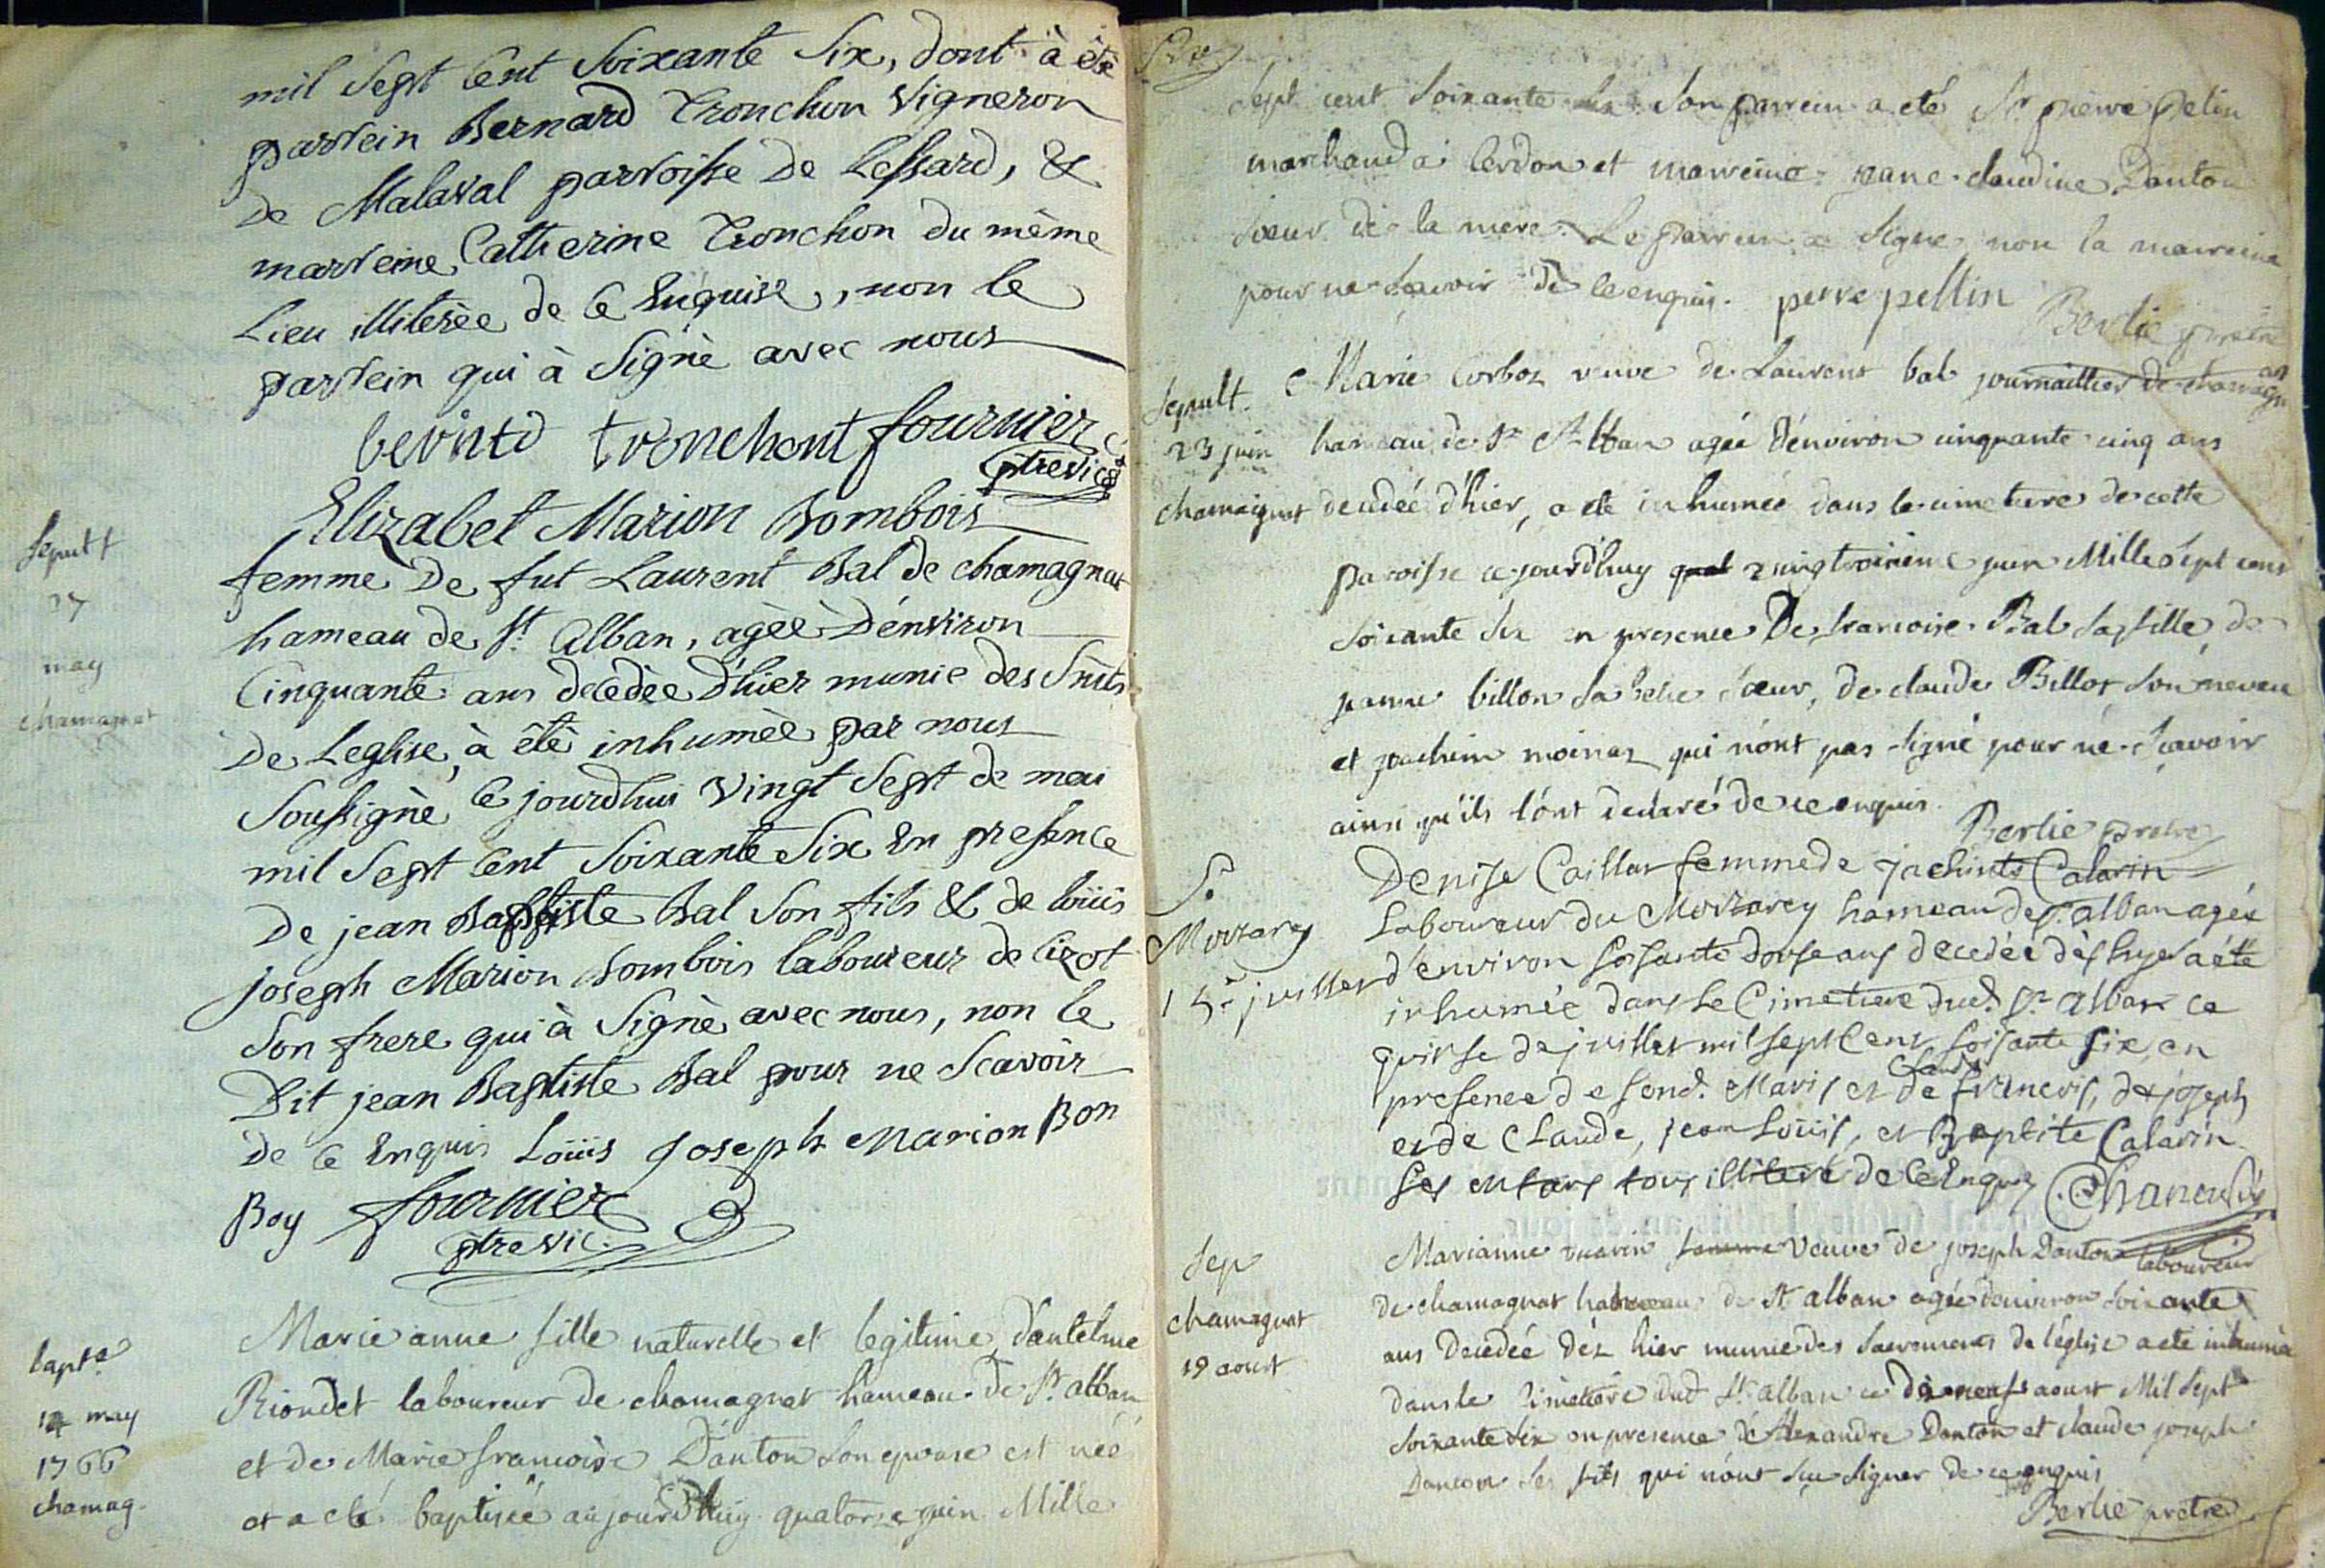 mil Sept Cent Soixante Six, dont à été
parrein Bernard Tronchon Vigneron
de Malaval parroisse de Lessard, &
marreine Catherine Tronchon du même
Lieu illiterée de ce Enquise, non le
parrein qui à Signè avec nous
tronchont fournier
ptre vic
Sepult
27
may
chamagnat
Elizabet Marion Bombois
femme de fut Laurent Bal de chamagnat
hameau de St. Alban, agèè D'environ
Cinquante ans decedèe D'hier munie des Snts
De Leglise, à êtè inhumèè par nous
Soussignè ce jourdhui Vingt Sept de mai
mil Sept Cent Soixante Six En presence
De jean Baptiste Bal Son fils & de loüis
joseph Marion Bombois laboureur de Cizot
Son frere qui à Signè avec nous, non le
Dit jean Baptiste Bal pour ne Scavoir
de ce Enquis Loüis joseph Marion Bon
Boy fournier
ptre vic.
bapte
14 may
1766
chamag.
Marie anne fille naturelle et legitime d'antelme
Riondet laboureur de chamagnat hameau de St. alban
et de Marie francoise Danton son epouse est née
et a eté baptisée aujourdhuy quatorze juin Mille
Sept cent Soixante Six Son parrein a eté Sr. pierre pelin
marchand a Cerdon et marreine jeane claudine Danton
Soeur de la mere. Le parrein a Signe non la marreine
pour ne Scavoir de ce enquis. perre pellin
Berlie pretre
Sepult.
23 juin
chamagnat
Marie Corboz veuve de Laurent bal journallier de chamagnat
hameau de St Alban agée d'environ cinquante cinq ans
decedée d'hier, a eté inhumée dans le cimetiere de cette
paroisse ce jourd'huy vingtroisieme juin Mille Sept cent
Soixante Six en presence De francoise Bal sa fille, de
jeanne billon sa belle Soeur, de claude Billot Son neveu
et joachim moinaz qui n'ont pas signé pour ne Scavoir
ainsi qu'ils l'ont declaré de ce enquis.
Berlie pretre
S.
Morzarey
15e juillet
Denise Caillat femme de jachints Calarin
Laboureur du Morzarey hameau de St. alban agée
d'environ soisante douse ans decedée dès hyer a été
inhumée dans Le Cimetiere dud. St. alban ce
quinse de juillet mil sept Cent soisante six, en
presence de sond. Maris et de Claude francois, de joseph
et de Claude, jean Loüis, et Baptite Calarin
ses enfans tous illiteré de ce Enquis
Sep
chamagnat
19 aoust
Marianne veuve de joseph Danton laboureur
de chamagnat hameau de St. alban agée denviron soixante
ans decedée dèz hier munie des Sacrements de l'église a eté inhumée
dans le Cimetiere dud St. alban ce dix neuf aoust Mil Sept
Soixante Six en presence d'Alexandre Danton et claude joseph
Danton Ses fils qui n'ont Sçu Signer de ce enquis
Berlie pretre